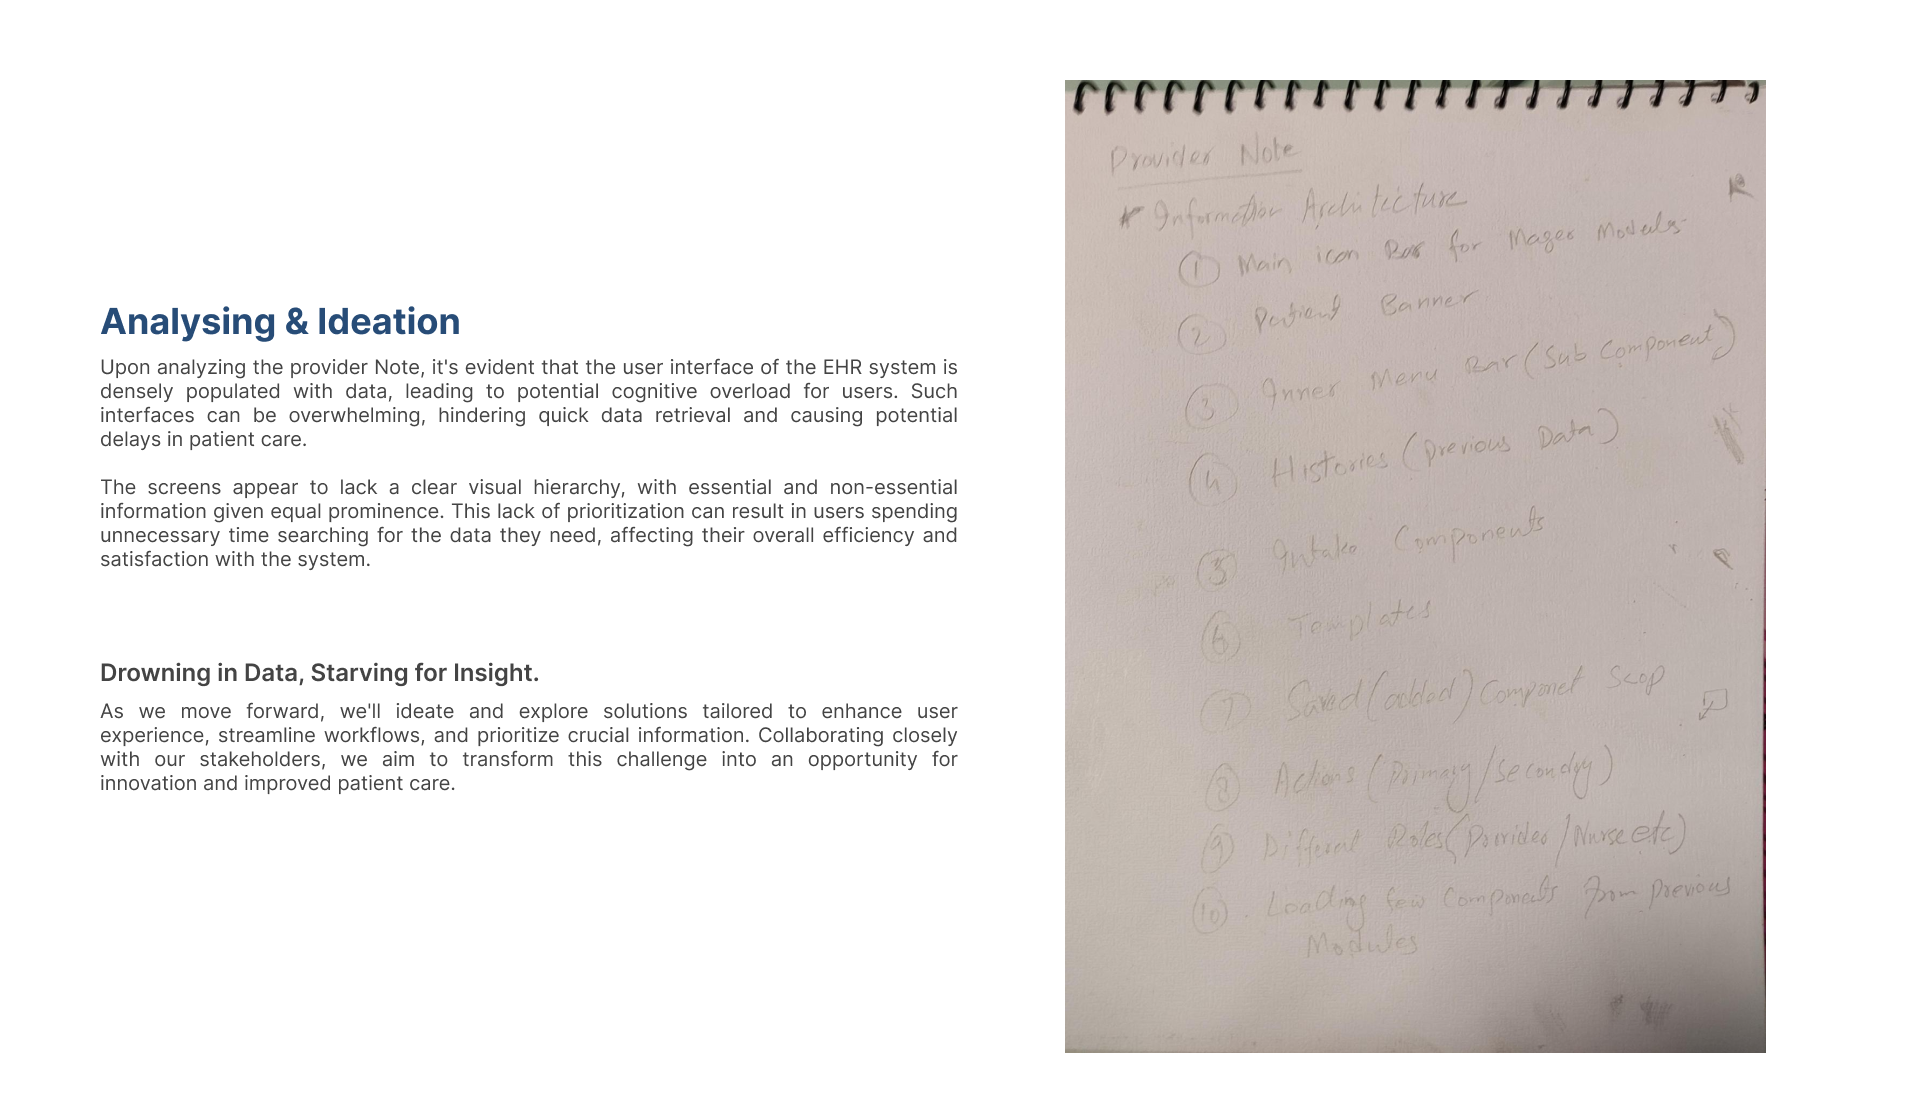 Analysing & Ideation
Upon analyzing the provider Note, it's evident that the user interface of the EHR system is
densely populated with data, leading to potential cognitive overload for users. Such
interfaces can be overwhelming, hindering quick data retrieval and causing potential
delays in patient care.
The screens appear to lack a clear visual hierarchy, with essential and non-essential
information given equal prominence. This lack of prioritization can result in users spending
unnecessary time searching for the data they need, affecting their overall efficiency and
satisfaction with the system.
Drowning in Data, Starving for Insight.
As we move forward, we'll ideate and explore solutions tailored to enhance user
experience, streamline workflows, and prioritize crucial information. Collaborating closely
with our stakeholders, we aim to transform this challenge into an opportunity for
innovation and improved patient care.
Provider Note
* Information Architecture
① Main icon Bar for Mager Moduls
② Patient Banner
③ Inner Menu Bar (Sub Component)
④ Histories (Previous Data)
⑤ Intake Components
⑥ Templates
⑦ Saved (added) Componet Scop
⑧ Actions (Primary/Secondyy)
⑨ Differal Roles (Provider/Nurse etc)
⑩ Loading few Components from previous
Modules